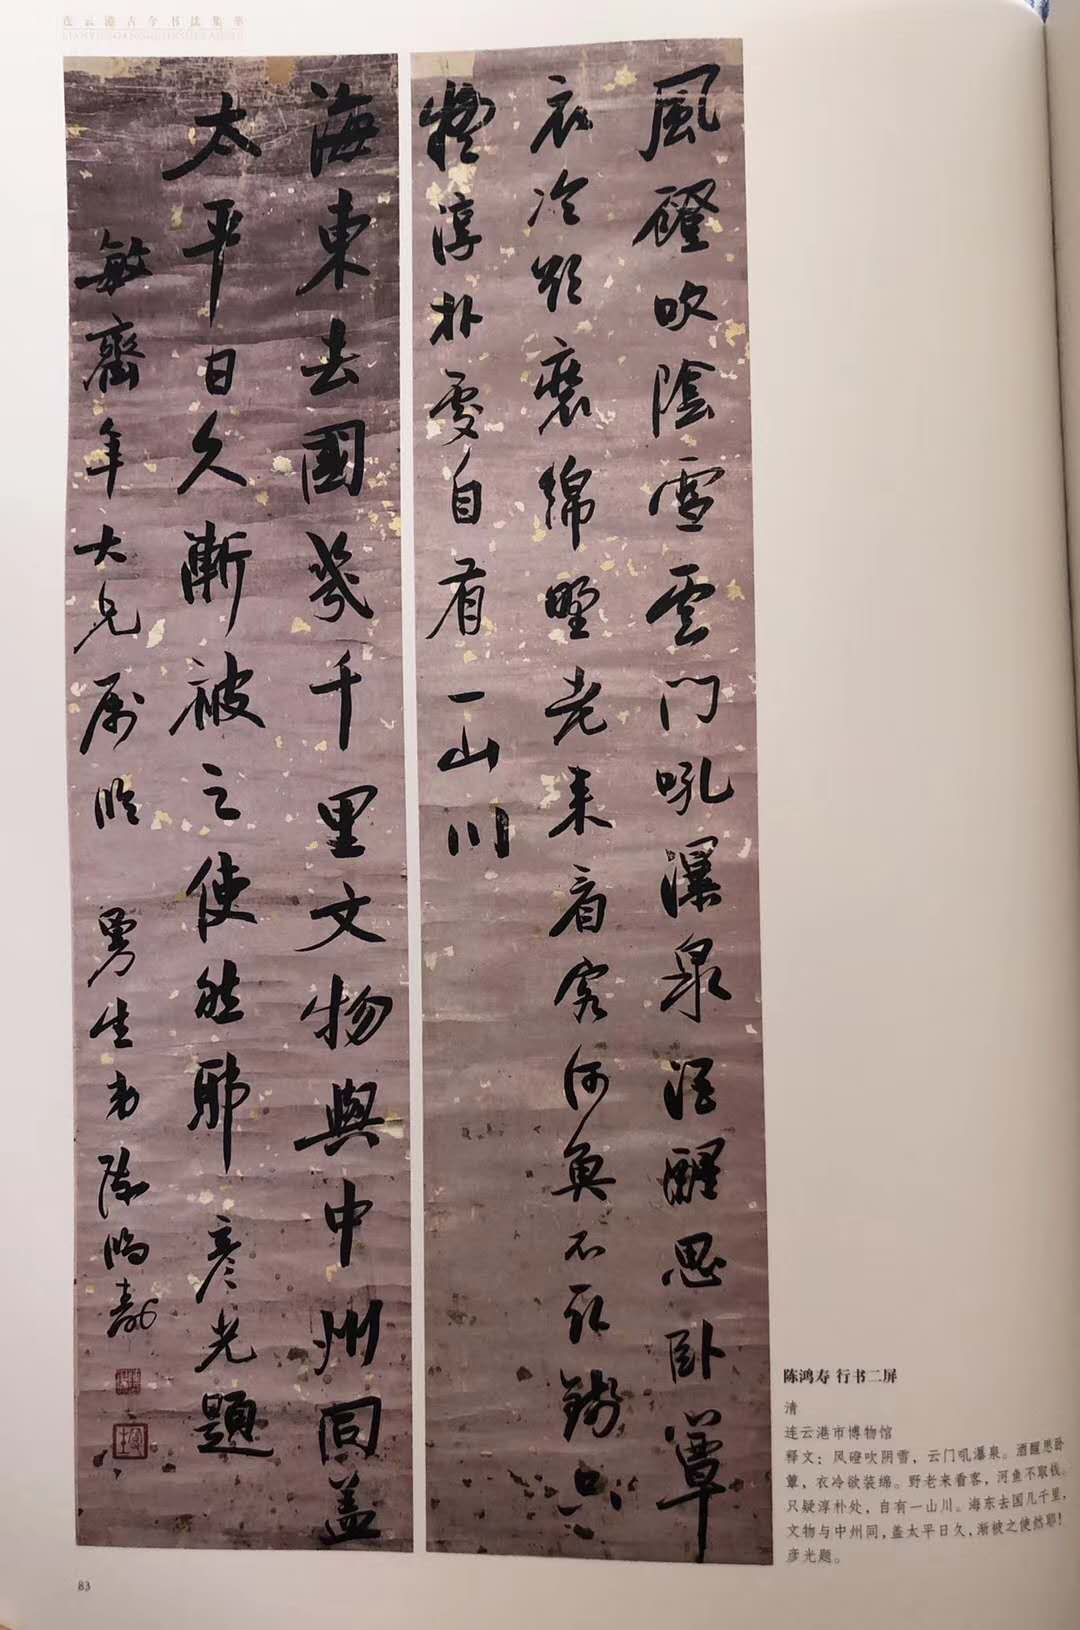 连云港古今书法集萃
風磴吹陰雪雲门吼瀑泉酒醒思卧簟
衣冷欲裝綿野老来看客河魚不取錢只
疑淳朴處自有一山川
海東去國幾千里文物與中州同盖
太平日久漸被之使然耶 彦光題
敏齋年大兄属临 曼生弟陳鴻壽
陈鸿寿 行书二屏
清
连云港市博物馆
释文：风磴吹阴雪，云门吼瀑泉。酒醒思卧
簟，衣冷欲装绵。野老来看客，河鱼不取钱。
只疑淳朴处，自有一山川。海东去国几千里，
文物与中州同，盖太平日久，渐被之使然耶！
彦光题。
83